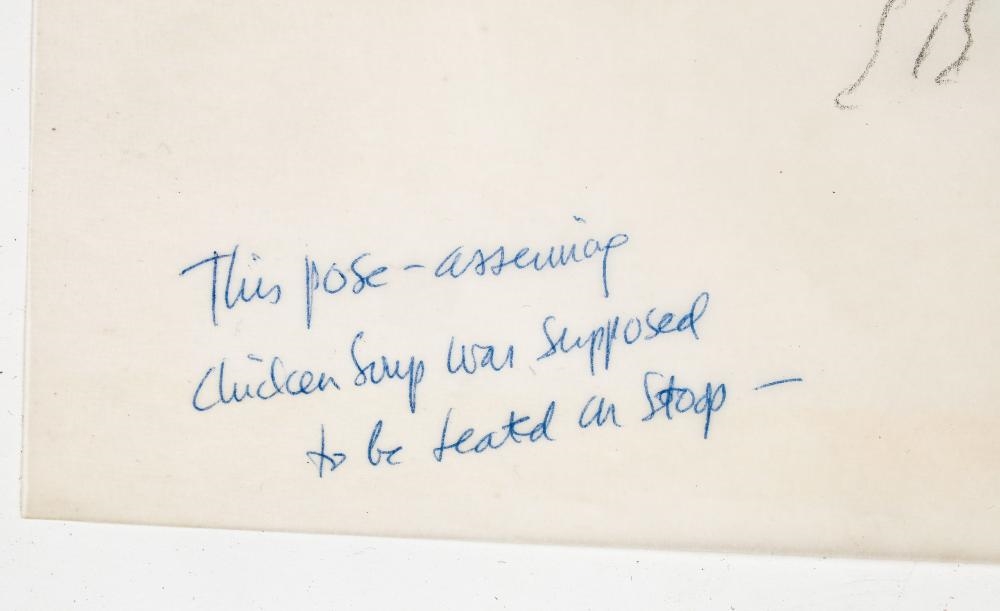 This pose – assuming
Chicken Soup was supposed
to be seated on Stoop –